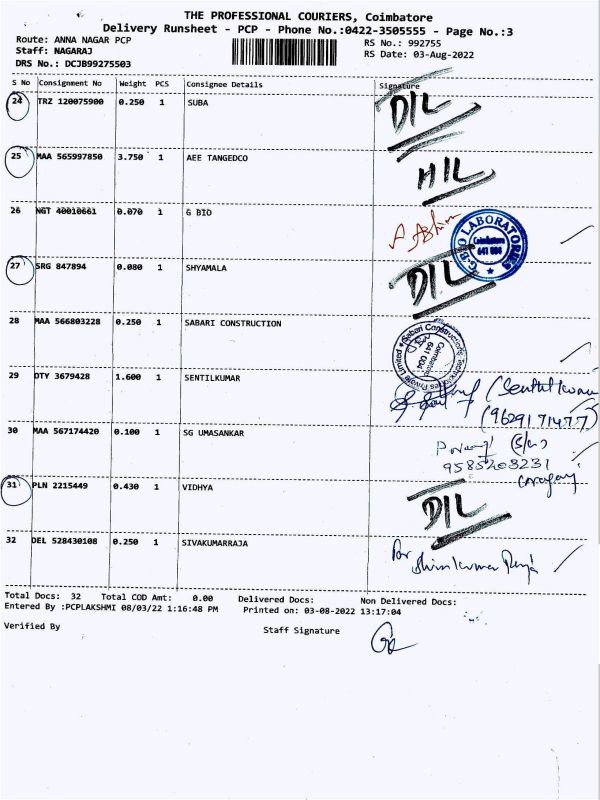 THE PROFESSIONAL COURIERS, Coimbatore
Delivery Runsheet - PCP - Phone No.:0422-3505555 - Page No.:3
Route: ANNA NAGAR PCP
RS No.: 992755
Staff: NAGARAJ
RS Date: 03-Aug-2022
DRS No.: DCJB99275503
S No Consignment No Weight PCS Consignee Details Signature
24 TRZ 120075900 0.250 1 SUBA DIL
25 MAA 565997850 3.750 1 AEE TANGEDCO HIL
26 NGT 40010661 0.070 1 G BIO
G-BIO LABORATORIES
Coimbatore
641 004
27 SRG 847894 0.080 1 SHYAMALA DIL
28 MAA 566803228 0.250 1 SABARI CONSTRUCTION
Coimbatore
641 004
29 DTY 3679428 1.600 1 SENTILKUMAR
(9629171477)
30 MAA 567174420 0.100 1 SG UMASANKAR
9585203231
31 PLN 2215449 0.430 1 VIDHYA DIL
32 DEL 528430108 0.250 1 SIVAKUMARRAJA
Total Docs: 32 Total COD Amt: 0.00 Delivered Docs: Non Delivered Docs:
Entered By :PCPLAKSHMI 08/03/22 1:16:48 PM Printed on: 03-08-2022 13:17:04
Verified By
Staff Signature